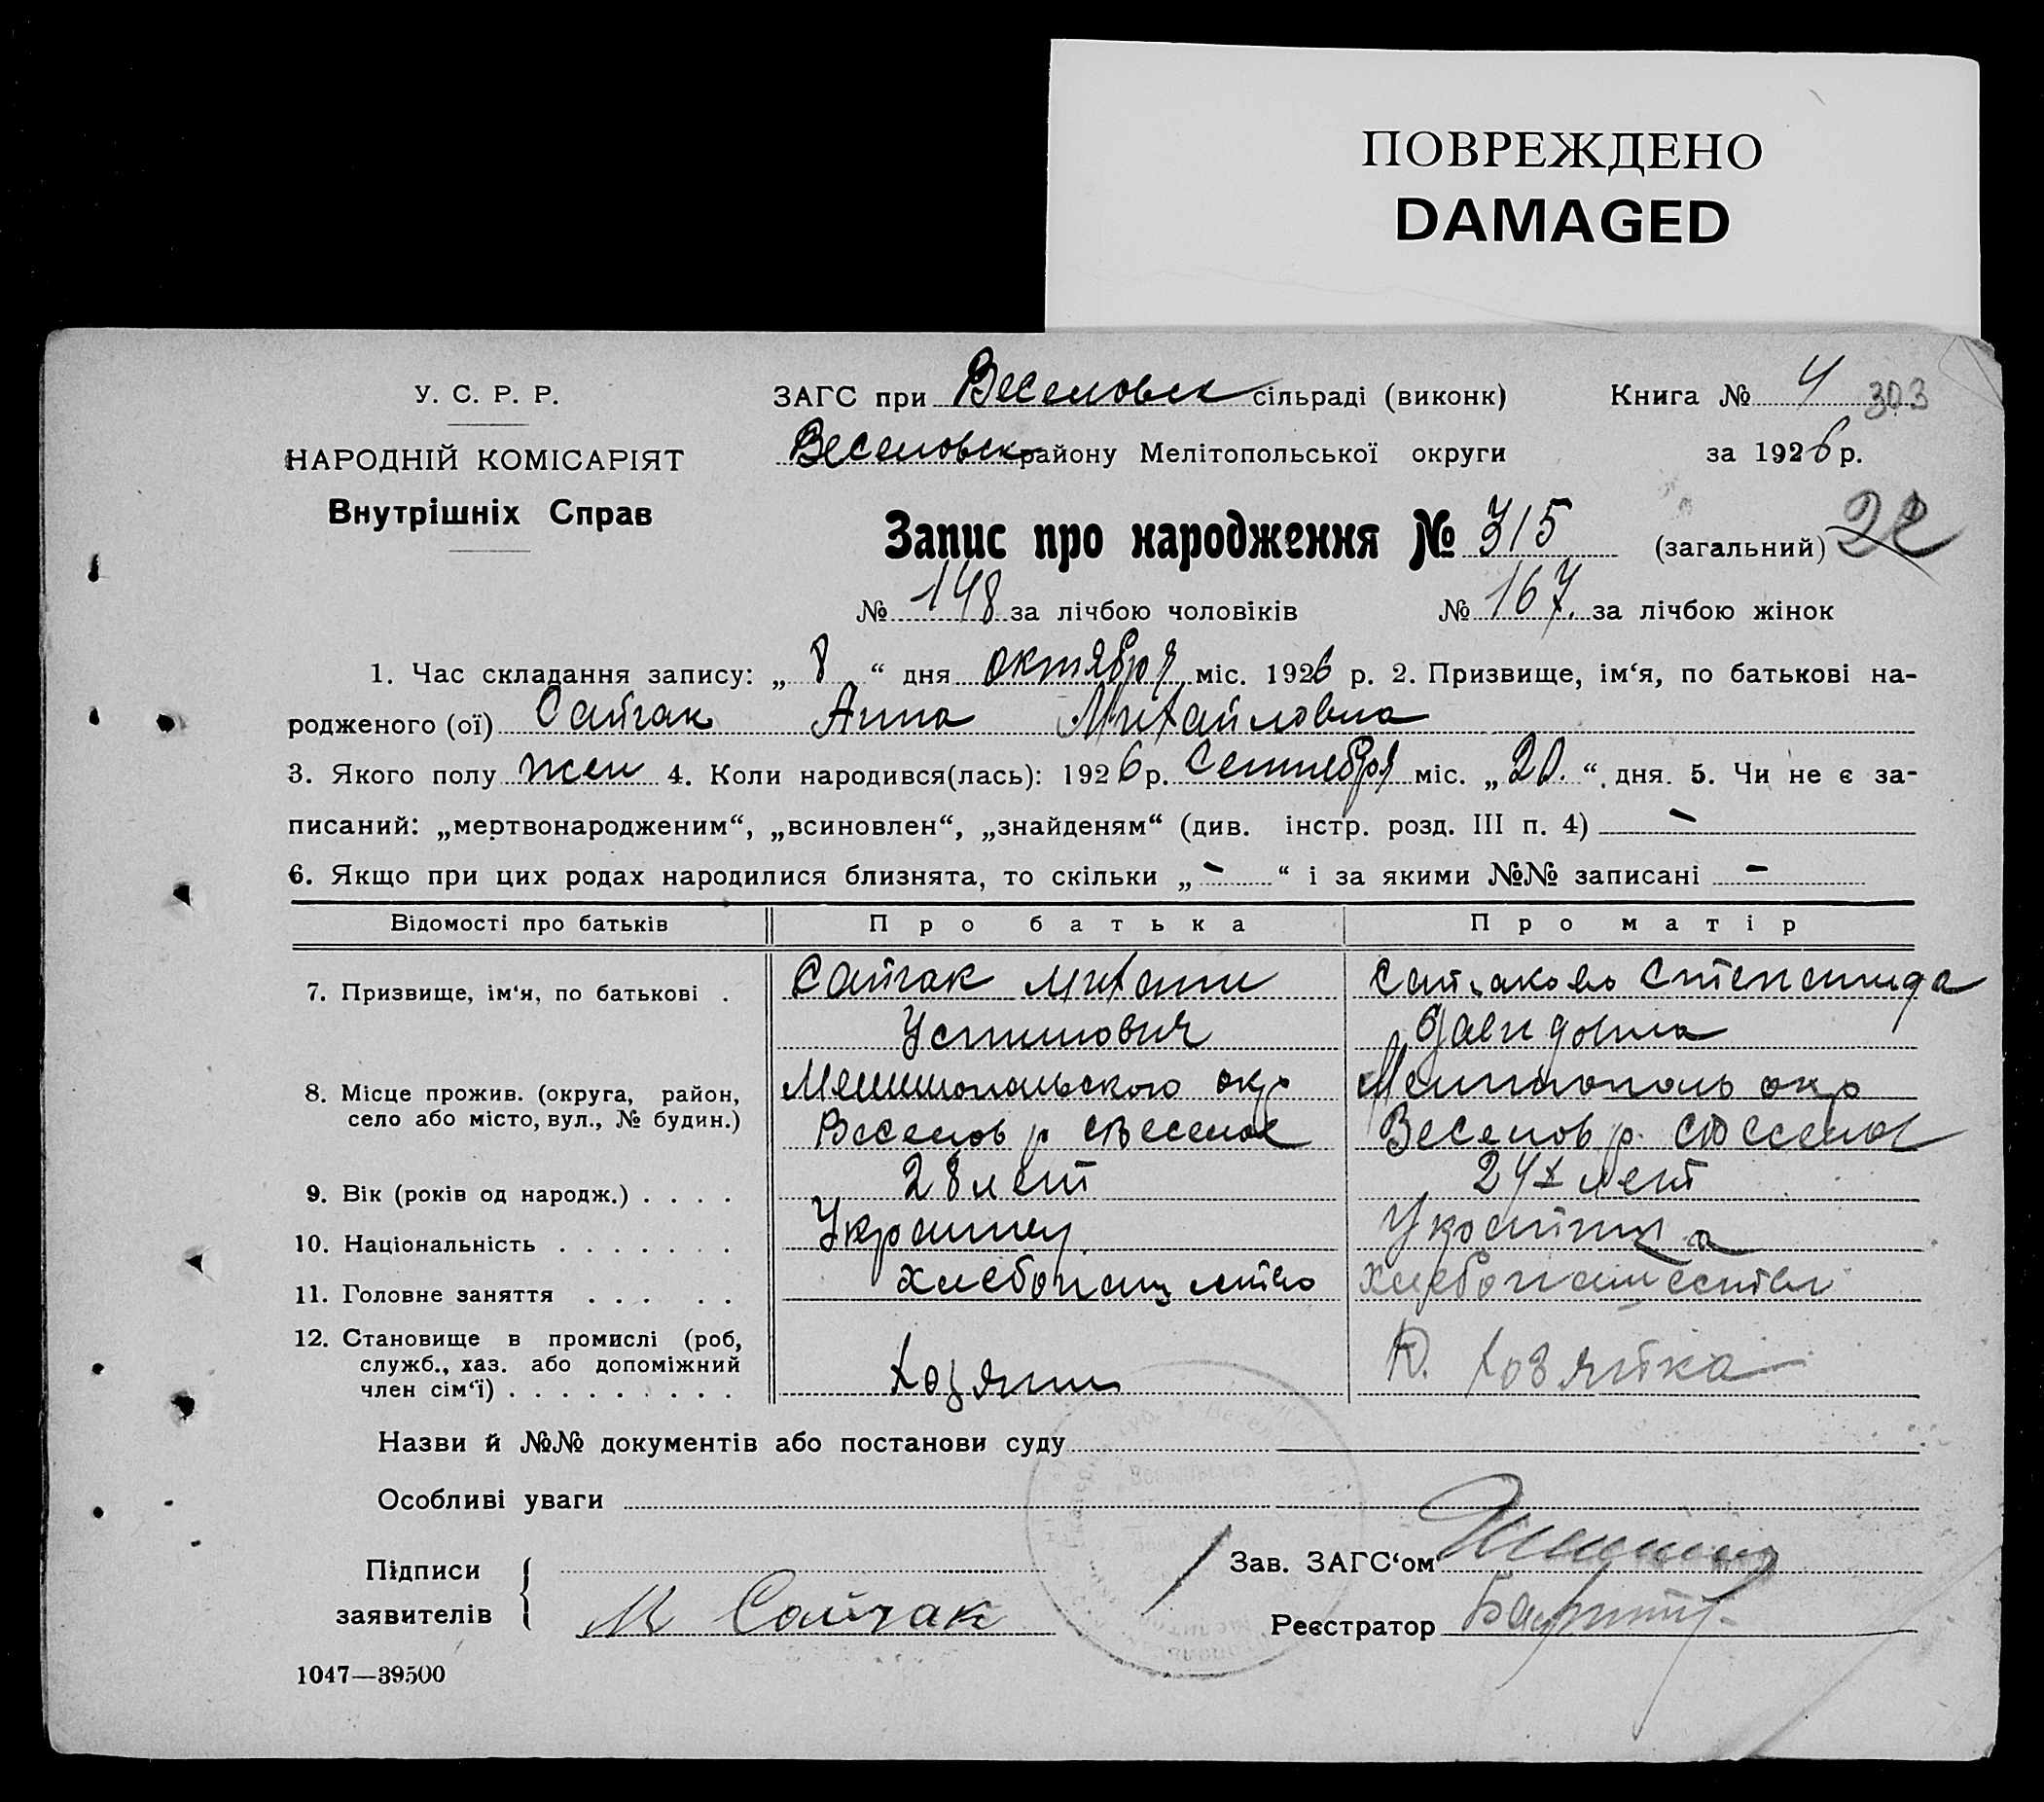 ПОВРЕЖДЕНО
DAMAGED
У. С. Р. Р.
НАРОДНІЙ КОМІСАРІЯТ
Внутрішніх Справ
ЗАГС при Веселовск сільраді (виконк)
Веселовск району Мелітопольської округи
Книга № 4 303
за 1926 р.
Запис про народження № 315 (загальний) 22
№ 148 за лічбою чоловіків № 167. за лічбою жінок
1. Час складання запису: „ 8 “ дня октября міс. 1926 р. 2. Призвище, ім‘я, по батькові на-
родженого (ої) Сайгак Анна Михайловна
3. Якого полу жен 4. Коли народився(лась): 1926 р. Сентября міс. „ 20. “ дня. 5. Чи не є за-
писаний: „мертвонародженим“, „всиновлен“, „знайденям“ (див. інстр. розд. III п. 4) –
6. Якщо при цих родах народилися близнята, то скільки „ – “ і за якими №№ записані –
Відомості про батьків Про батька Про матір
7. Призвище, ім‘я, по батькові . Сайгак Михаил Сайгакова Степанида
Устинович Давидовна
8. Місце прожив. (округа, район, Мелитопольского окр Мелитополь окр
село або місто, вул., № будин.) Веселов р с Веселое Веселов р. с Веселое
9. Вік (років од народж.) . . . . 28 лет 24х лет
10. Національність . . . . . . . Украинец Украинка
11. Головне заняття . . . . . хлебопашество хлебопашество
12. Становище в промислі (роб,
служб., хаз. або допоміжний
член сім‘ї) . . . . . . . . . Хозяин Д. Хозяйка
Назви й №№ документів або постанови суду
Особливі уваги
Підписи
заявителів М Сайгак
Зав. ЗАГС‘ом
Реєстратор
1047—39500